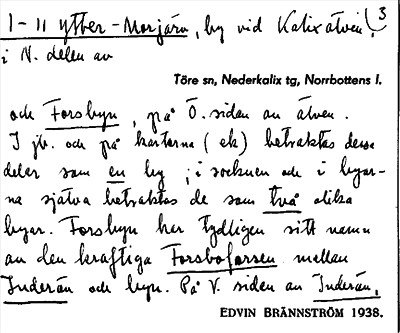 1-11 ytter-Morjärv, by vid Kalixälven, 3
i N. delen av
Töre sn, Nederkalix tg, Norrbottens l.
och Forsbyn, på Ö. sidan av älven.
I jb. och på kartorna (ek) betraktas dessa
delar som en by, i socknen och i byar-
na själva betraktas de som två olika
byar. Forsbyn har tydligen sitt namn
av den kraftiga Forsboforsen mellan
Inderån och byn. På V. sidan av Inderån,
EDVIN BRÄNNSTRÖM 1938.